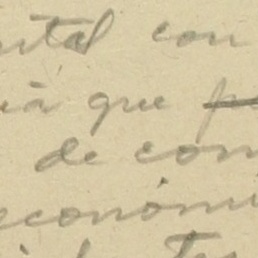 ntal con
ià que
de com
económi